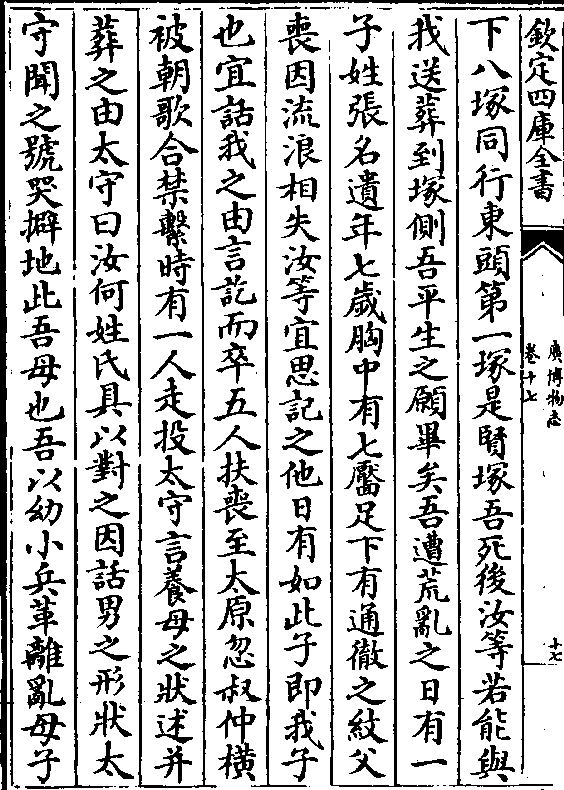 欽定四庫全書
廣博物志
卷十七
十七
下八塚同行東頭第一塚是賢塚吾死後汝等若能與
我送葬到塚側吾平生之願畢矣吾遭荒亂之日有一
子姓張名遺年七歲胸中有七靨足下有通徹之紋父
喪因流浪相失汝等宜思記之他日有如此子即我子
也宜話我之由言訖而卒五人扶喪至太原忽叔仲橫
被朝歌合禁繫時有一人走投太守言養母之狀述并
葬之由太守曰汝何姓氏具以對之因話男之形狀太
守聞之號哭擗地此吾母也吾以幼小兵革離亂母子